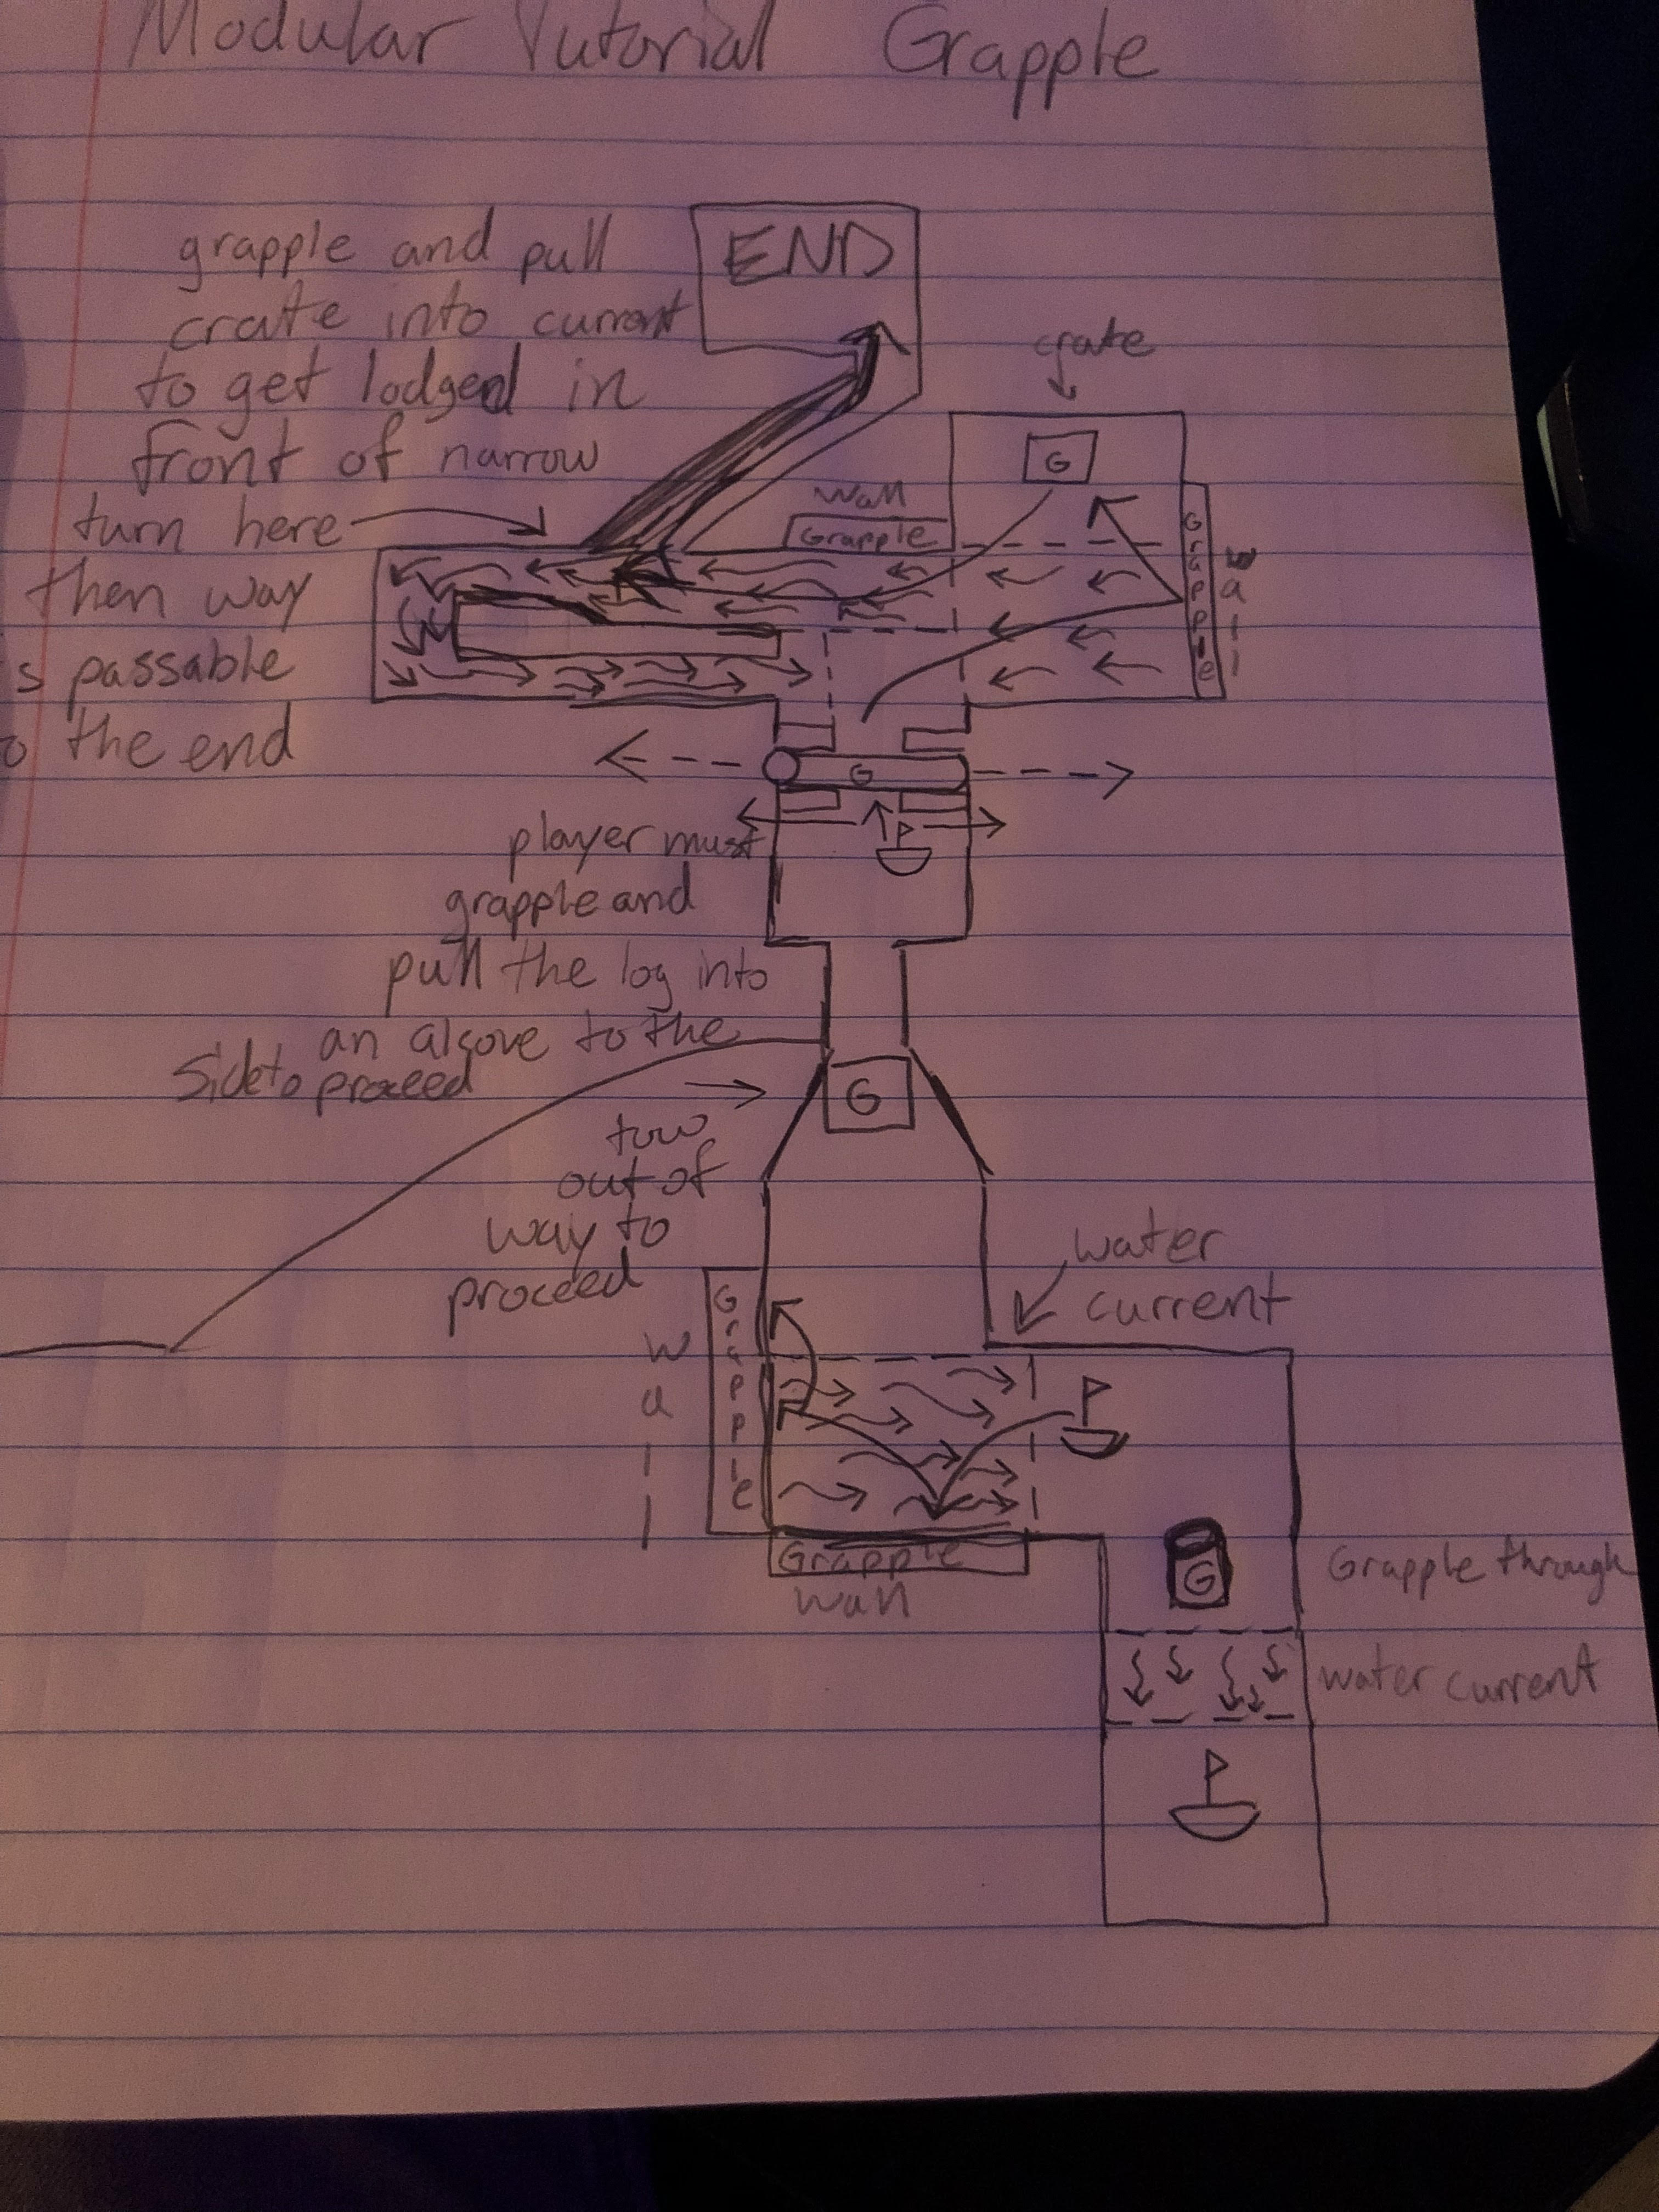 Modular Tutorial Grapple
END
grapple and pull
crate into current
to get lodged in
front of narrow
turn here
then way
s passable
o the end
crate
G
Wall
Grapple
Grapple
wall
G
player must
grapple and
pull the log into
an alcove to the
side to proceed
G
tow
out of
way to
proceed
water
current
Grapple
wall
Grapple
wall
G
Grapple through
water current